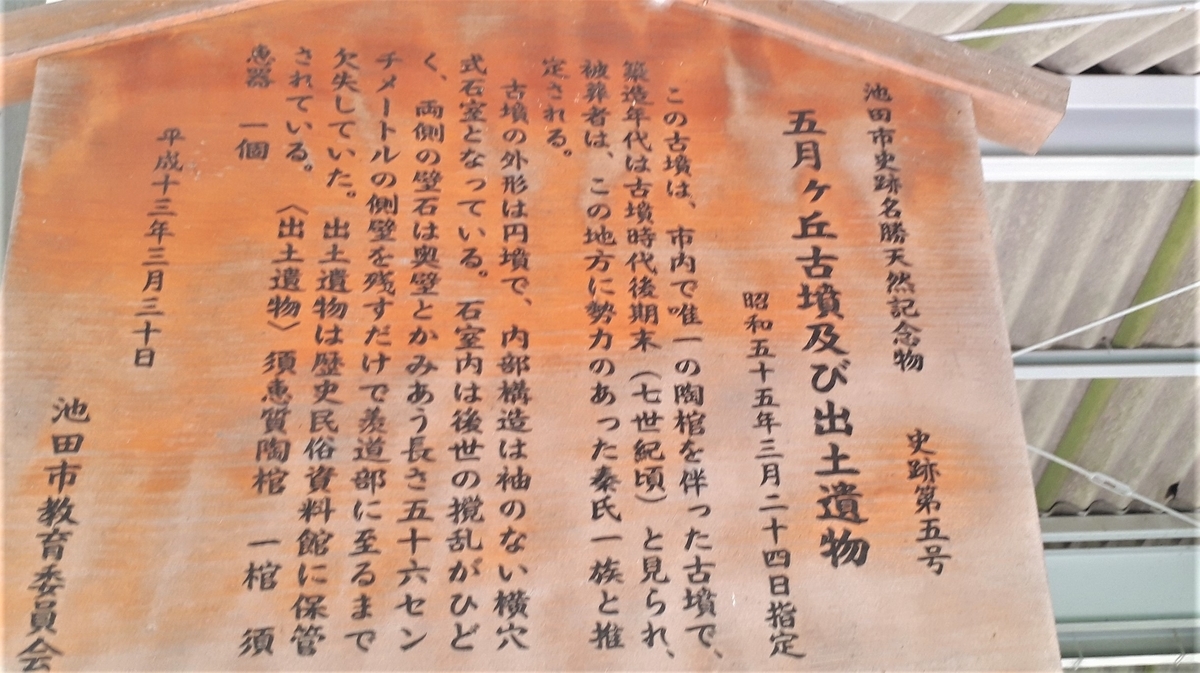 池田市史跡名勝天然記念物　史跡第五号
五月ヶ丘古墳及び出土遺物
昭和五十五年三月二十四日指定
この古墳は、市内で唯一の陶棺を伴った古墳で、
築造年代は古墳時代後期末（七世紀頃）と見られ、
被葬者は、この地方に勢力のあった秦氏一族と推
定される。
古墳の外形は円墳で、内部構造は袖のない横穴
式石室となっている。石室内は後世の撹乱がひど
く、両側の壁石は奥壁とかみあう長さ五十六セン
チメートルの側壁を残すだけで羨道部に至るまで
欠失していた。出土遺物は歴史民俗資料館に保管
されている。〈出土遺物〉須恵質陶棺　一棺　須
恵器　一個
平成十三年三月三十日
池田市教育委員会